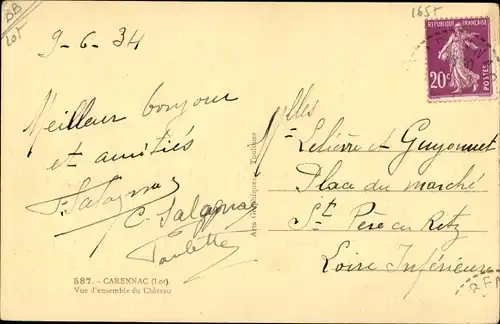 BB
Lot
1655
9-6.34
REPUBLIQUE FRANÇAISE
20c
POSTES
Meilleur bonjour
et amitiés
F. Salagnac
C. Salagnac
Paulette
Arts Graphiques Toulouse
Mlles
Lelièvre et Guyonnet
Place du marché
St Père en Retz
Loire Inférieure
587. - CARENNAC (Lot).
Vue d'ensemble du Château